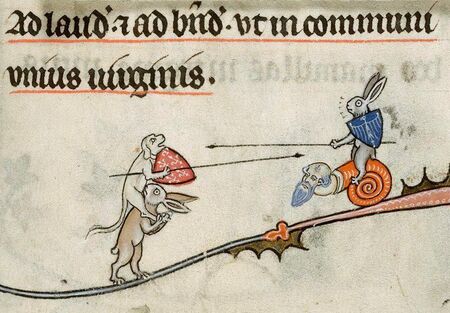 Ad laud' ⁊ ad bñd'. vt in communi
vnius uirginis.